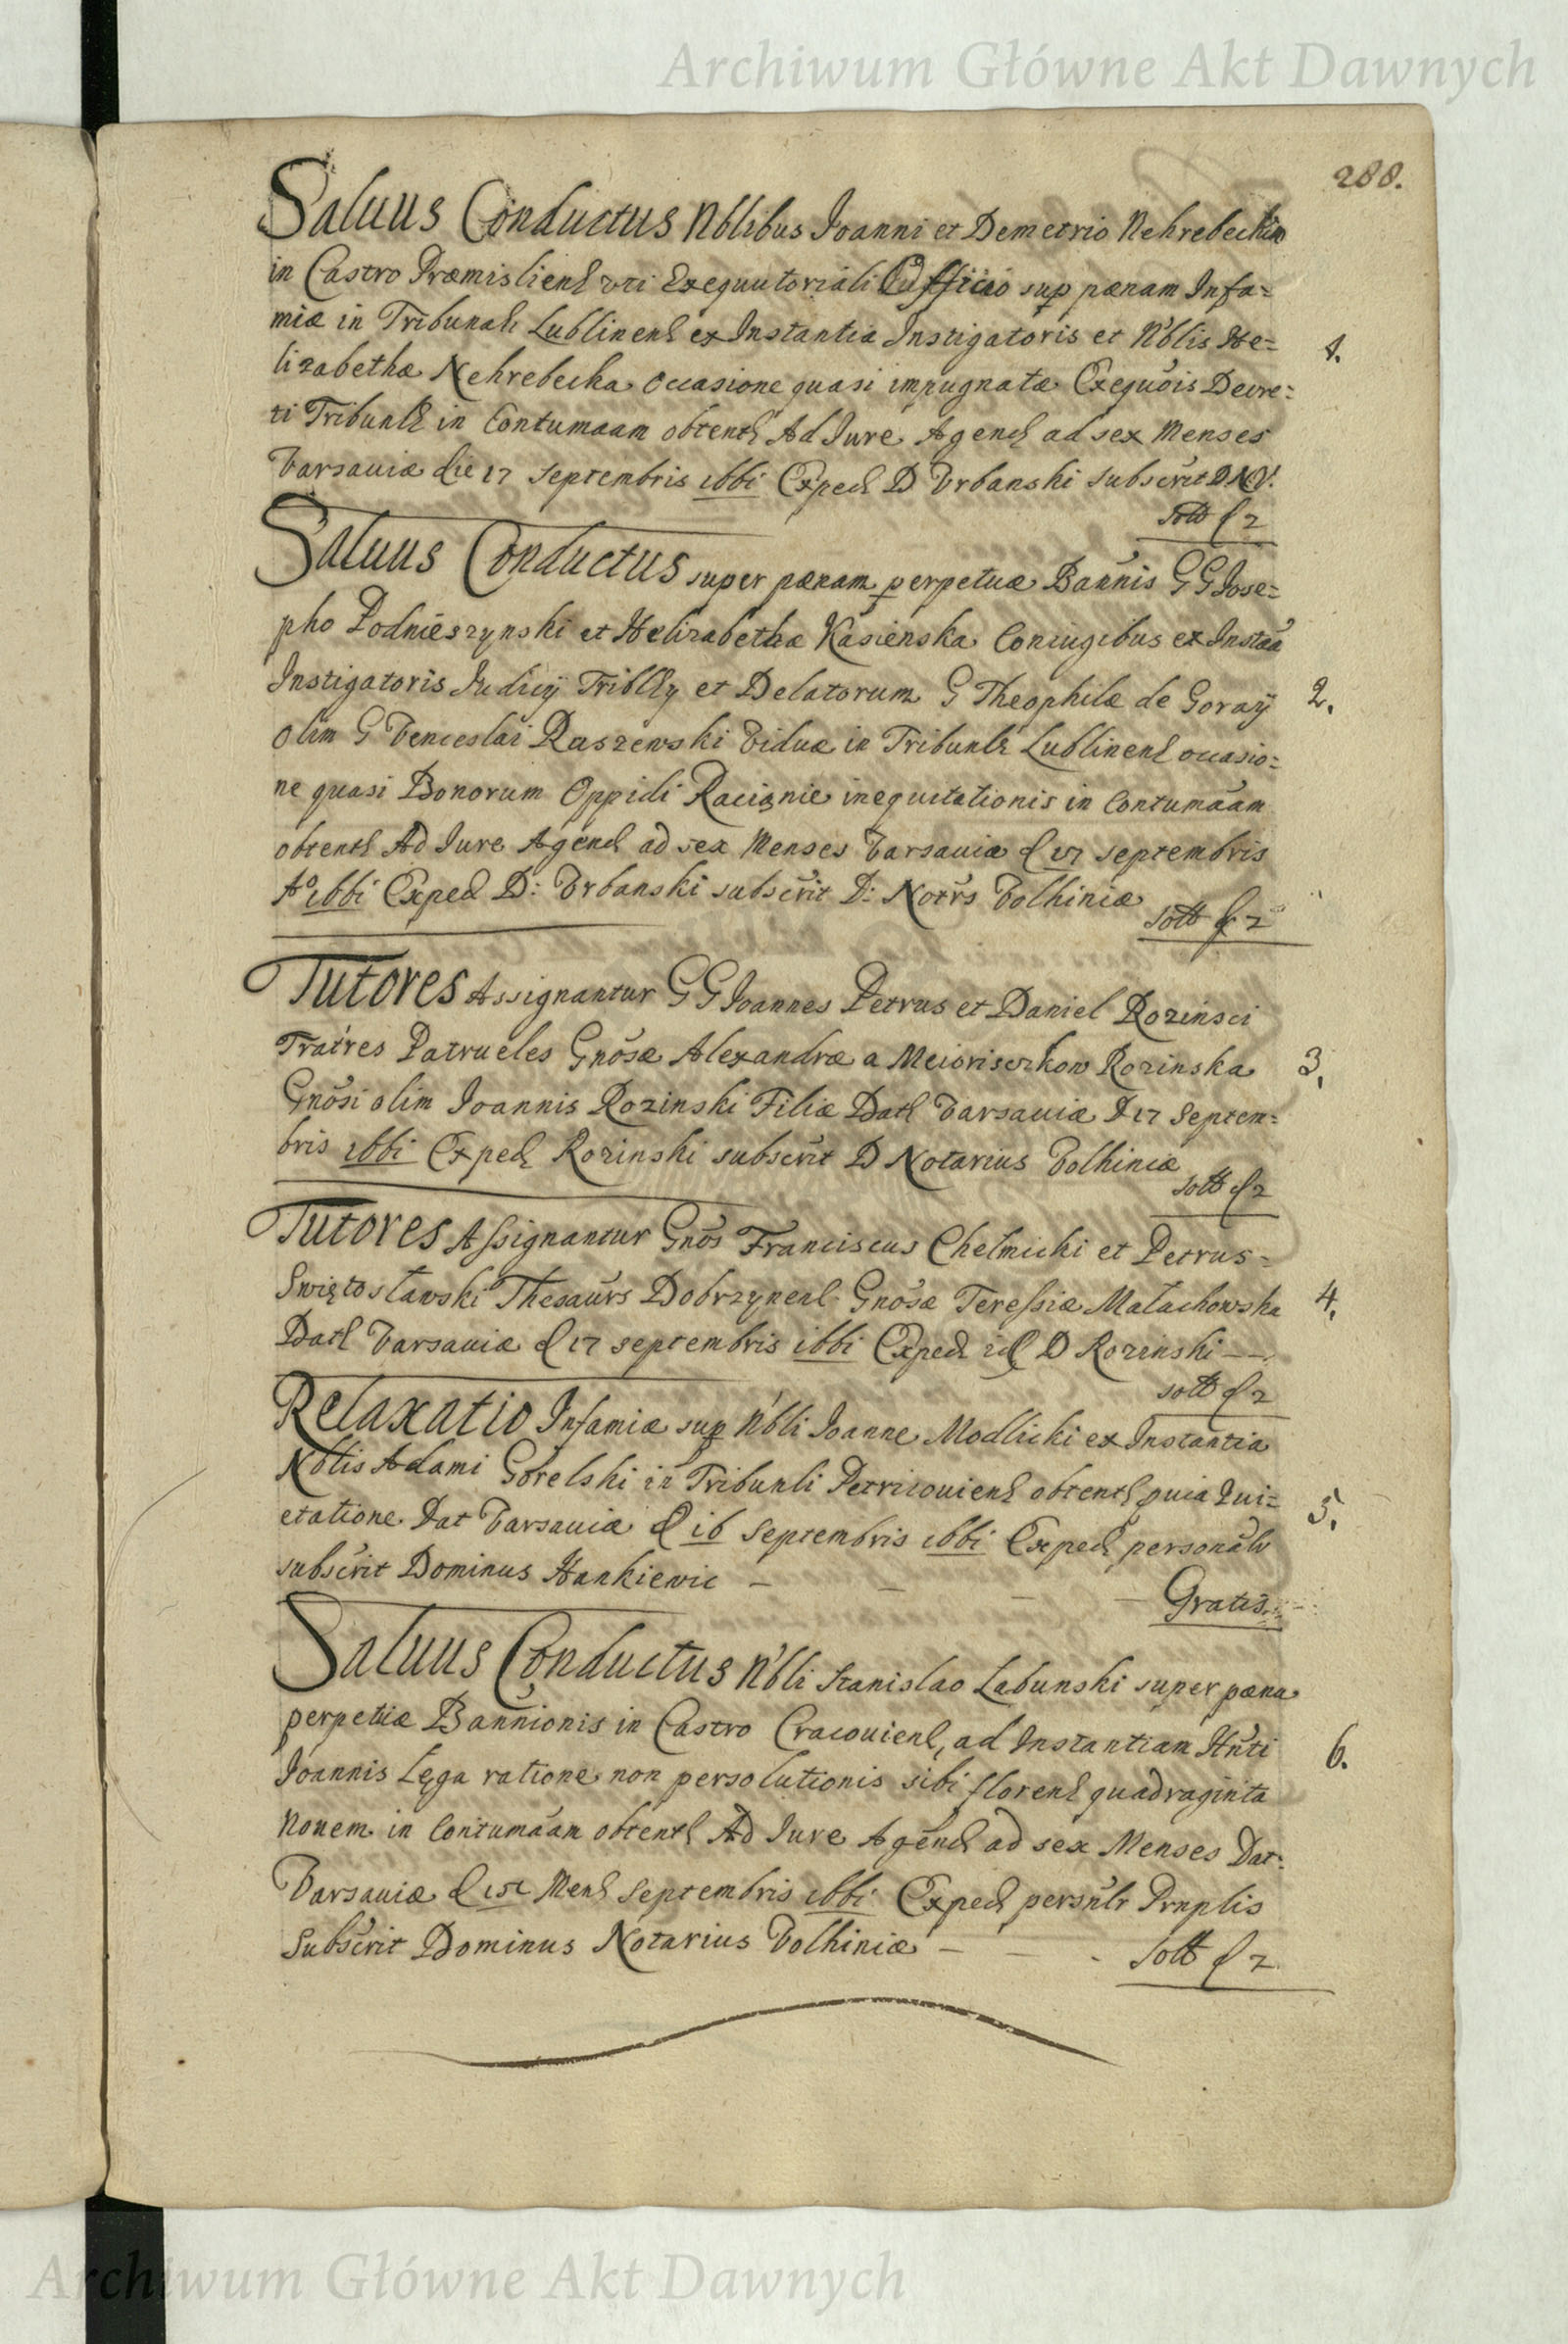 Archiwum Główne Akt Dawnych
288.
Saluus Conductus Nblibus Ioanni et Demetrio Nehrebeckim
in Castro Præmislienß vti Exequutoriali Officio sup pænam Infa=
miæ in Tribunali Lublinenß ex Instantia Instigatoris et N'blis He=
lizabethæ Nehrebecka occasione quasi impugnatæ Exequõis Decre=
ti Tribunlß in Contumaam obtentß Ad Iure Agenß ad sex Menses
Varsauiæ die 17 Septembris 1661 Exped D Vrbanski subscrit D N V.
1.
solt f 2
Saluus Conductus super pænam perpetuæ Bannis G G Iose=
pho Podnieszynski et Helizabethæ Kasienska Coniugibus ex Instãa
Instigatoris Iudicÿ Triblly et Delatorum G Theophilæ de Goraÿ
2.
olim G Venceslai Raszewski Viduæ in Tribunlß Lublinenß occasio=
ne quasi Bonorum Oppidi Raciąnie inequitationis in Contumãam
obtentß Ad Iure Agenß ad sex Menses Varsauiæ d 17 septembris
Aº 1661 Exped D: Vrbanski subscrit D: Notrs Volhiniæ
solt f 2
Tutores Assignantur G G Ioannes Petrus et Daniel Rozinsci
Fratres Patrueles Gnõsæ Alexandræ a Rozinska
3.
Gnõsi olim Ioannis Rozinski Filiæ Datß Varsauiæ D 17 Septem=
bris 1661 Exped Rozinski subscrit D Notarius Volhiniæ
solt f 2
Tutores Assignantur Gnõs Franciscus Chelmicki et Petrus=
Swiętosławski Thesaurs Dobrzynenß Gnõsæ Teressiæ Małachowska
4.
Datß Varsauiæ d 17 septembris 1661 Exped id D Rozinski — —
solt f 2
Relaxatio Infamiæ sup N'bli Ioanne Modlicki ex Instantia
Nblis Adami Gorelski in Tribunli Petricouienß obtentß quia Qui=
5.
etatione Dat Varsauiæ d 16 Septembris 1661 Exped personãlr
subscrit Dominus Hankiewic —
Gratis.
Saluus Conductus N'bli Stanislao Labunski super pæna
perpetuæ Bannionis in Castro Cracouienß, ad Instantiam Hnti
6.
Ioannis Lęga ratione non persolutionis sibi florenß quadraginta
Nouem in Contumãam obtentß Ad Iure Agenß ad sex Menses Dat:
Varsauiæ d Menß Septembris 1661 Exped persnlr Prnplis
Subscrit Dominus Notarius Volhiniæ — — - Solt f 2
Archiwum Główne Akt Dawnych